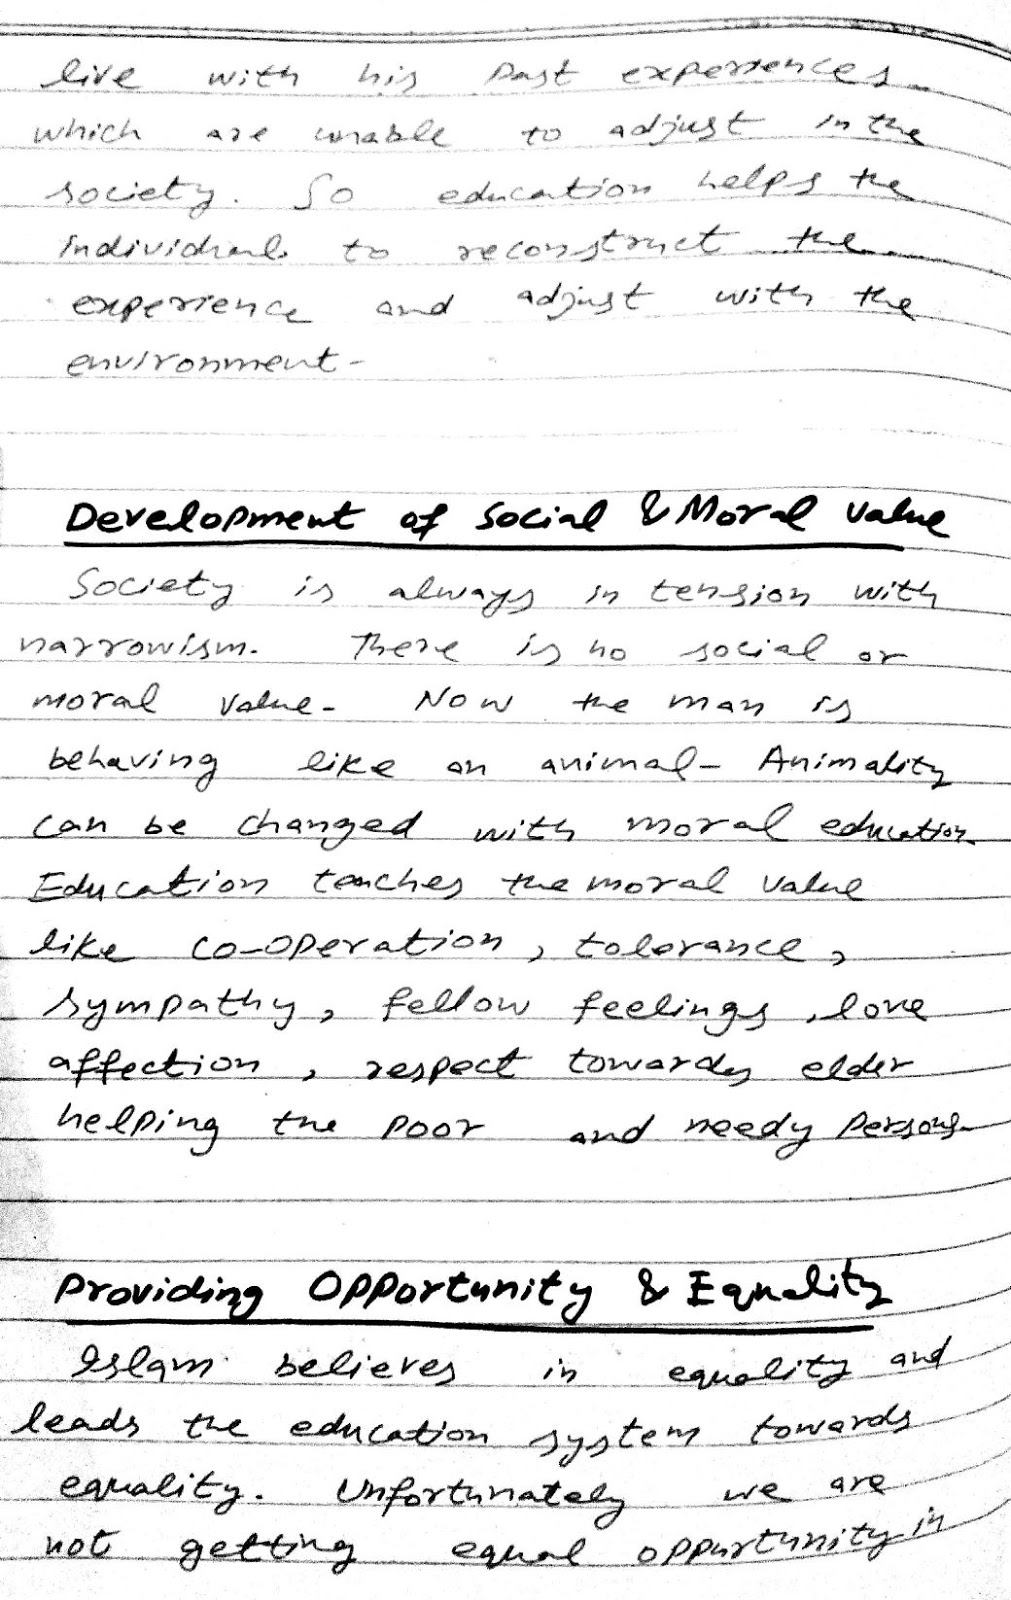 live with his Past experiences
which are unable to adjust in the
society. So education helps the
individual to reconstruct the
experience and adjust with the
environment-
Development of Social & Moral Value
Society is always in tension with
narrowism. There is no social or
moral value- Now the man is
behaving like an animal- Animality
can be changed with moral education
Education teaches the moral value
like co-operation, tolerance,
sympathy, fellow feelings, love
affection, respect towards elder
helping the poor and needy Persons-
Providing Opportunity & Equality
Islam believes in equality and
leads the education system towards
equality. Unfortunately we are
not getting equal oppurtunity in